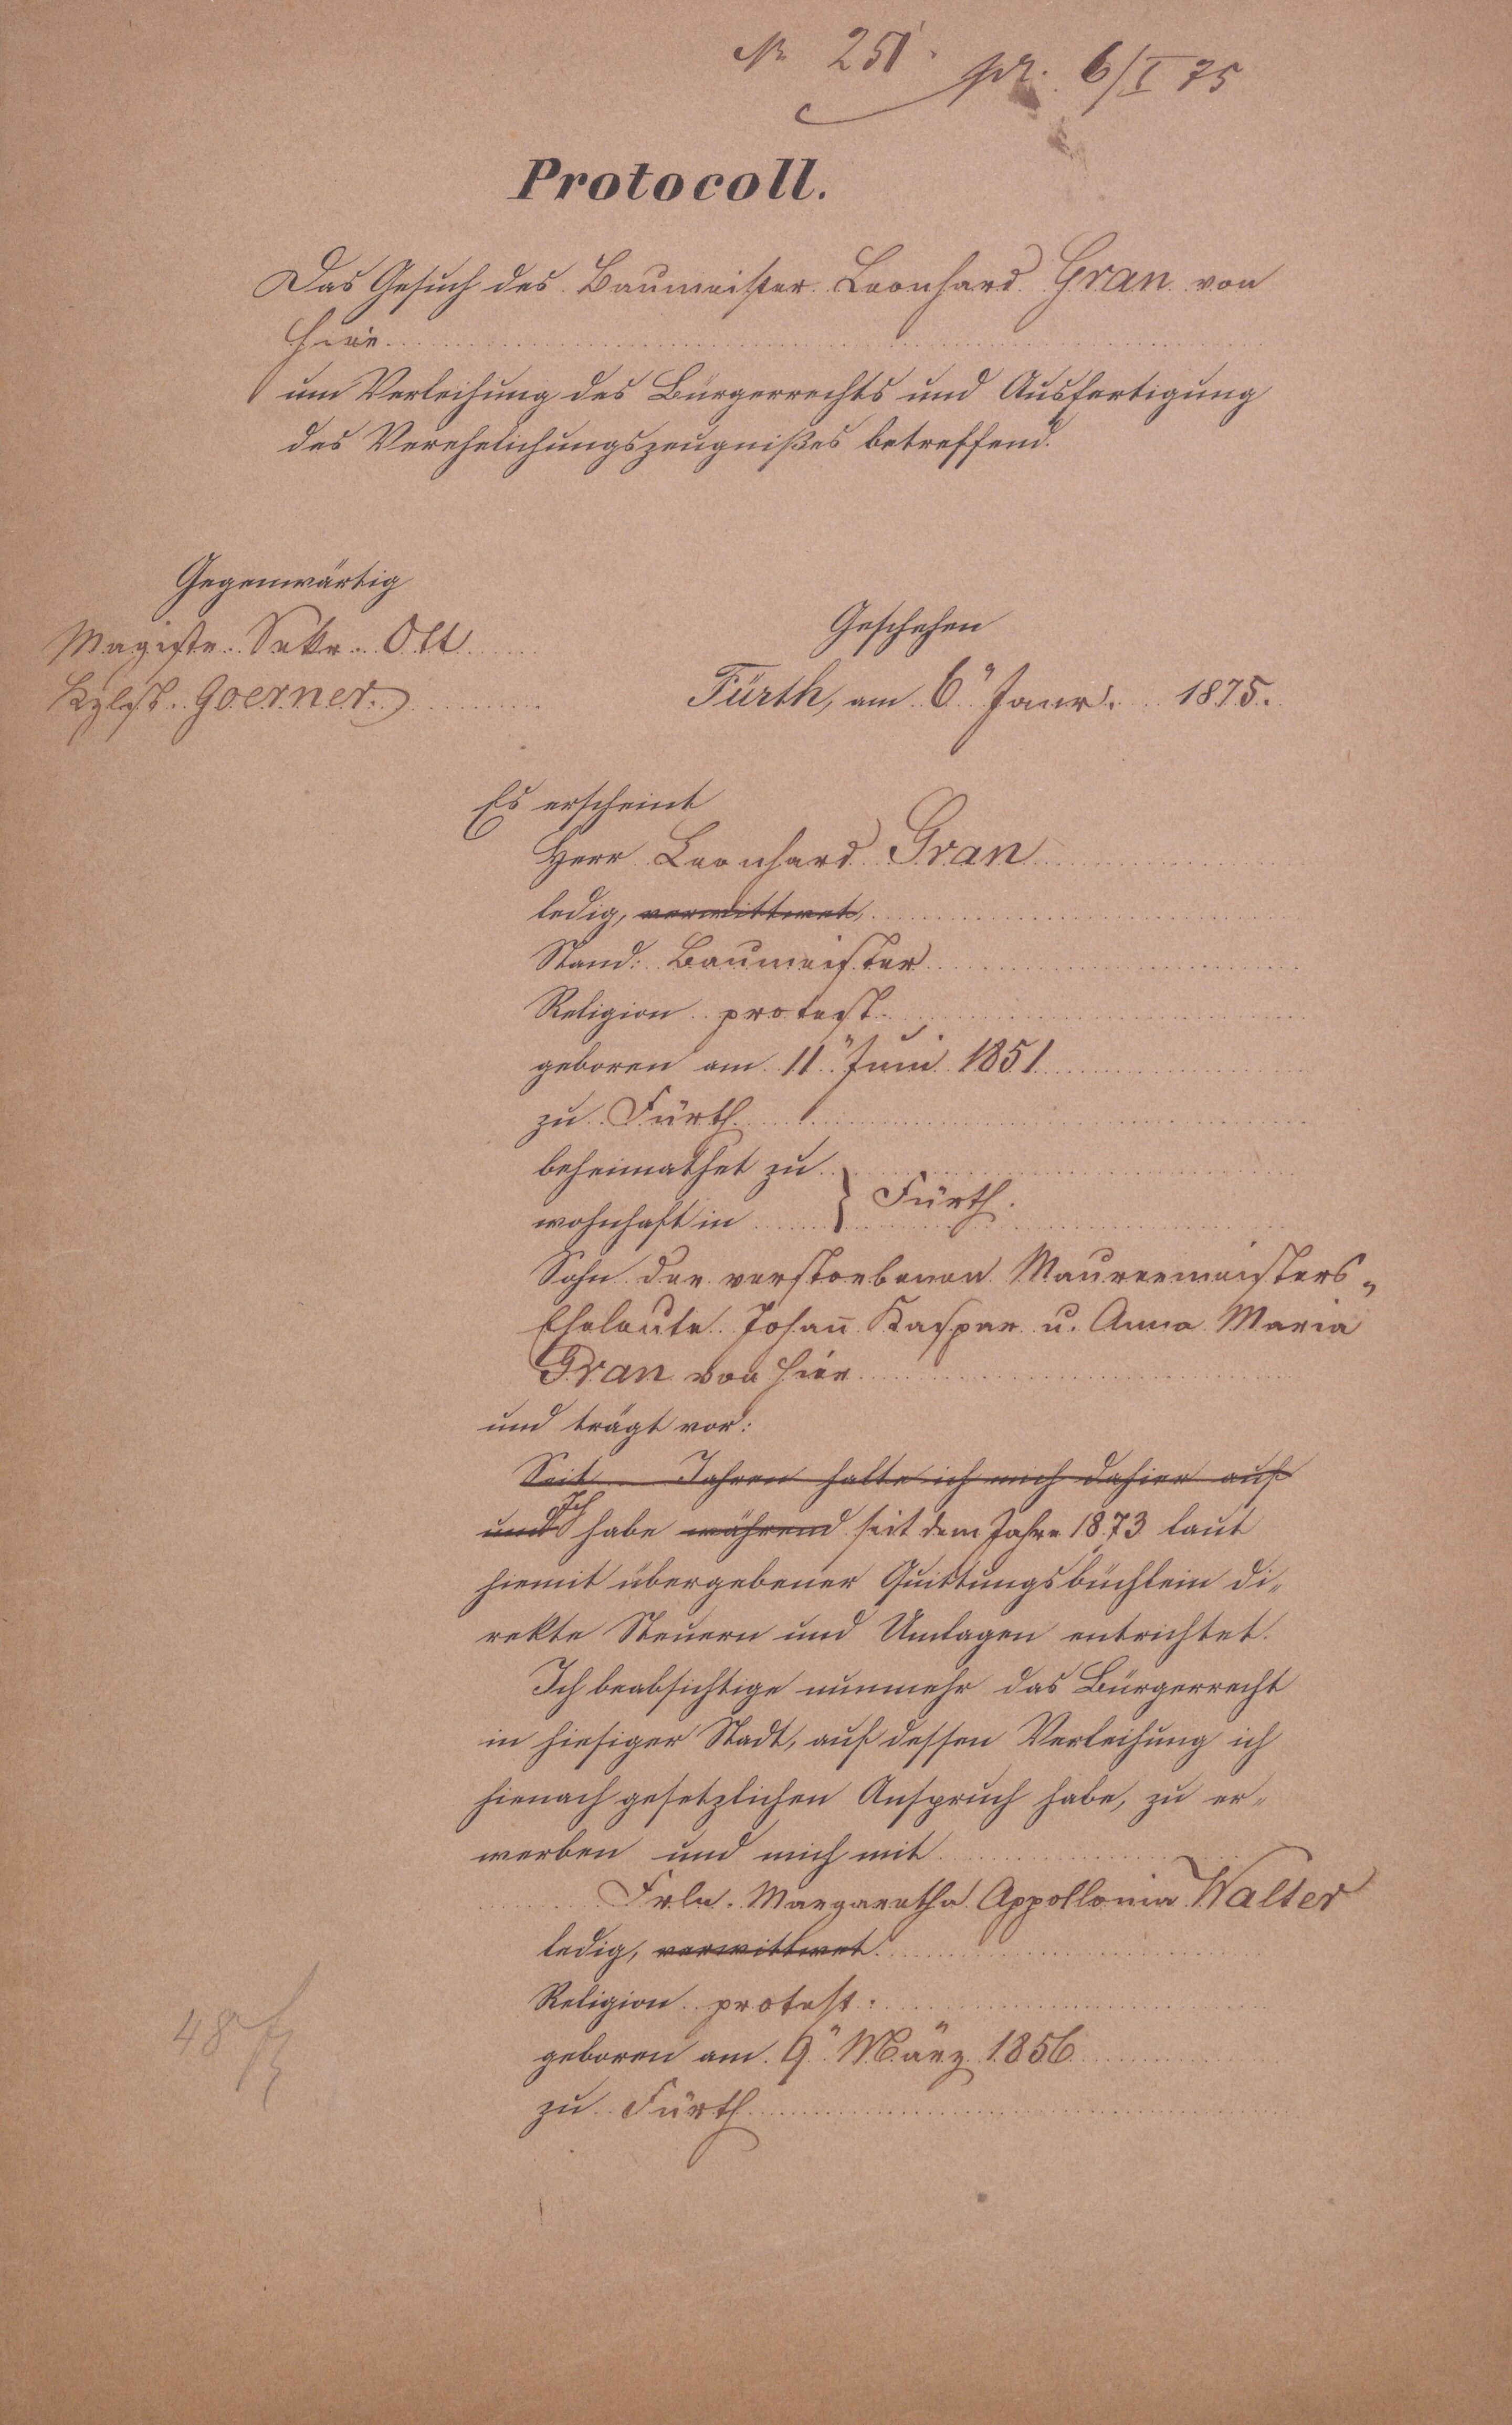 № 251. pr. 6/I 75
Protocoll.
Das Gesuch des Baumeister Leonhard Gran von
hier
um Verleihung des Bürgerrechts und Ausfertigung
des Verehelichungszeugnißes betreffend.
Gegenwärtig
Magistr. Sekr. Ott
Kzlist. Goerner.
Geschehen
Fürth, am 6" Janr. 1875.
Es erscheint
Herr Leonhard Gran
ledig, verwittwet,
Stand: Baumeister
Religion protest.
geboren am 11" Juni 1851
zu Fürth
beheimathet zu
wohnhaft in } Fürth.
Sohn der verstorbenen Maurermeisters-
Eheleute Johan̄ Kaspar u. Anna Maria
Gran von hier
und trägt vor:
Seit Jahren halte ich mich dahier auf
und Ich habe während seit dem Jahre 1873 laut
hiemit übergebener Quittungsbüchlein di-
rekte Steuern und Umlagen entrichtet.
Ich beabsichtige nunmehr das Bürgerrecht
in hiesiger Stadt, auf dessen Verleihung ich
hienach gesetzlichen Anspruch habe, zu er-
werben und mich mit
Frln. Margaretha Appollonia Walter
ledig, verwittwet
Religion protest.
geboren am 9" März 1856
zu Fürth
48